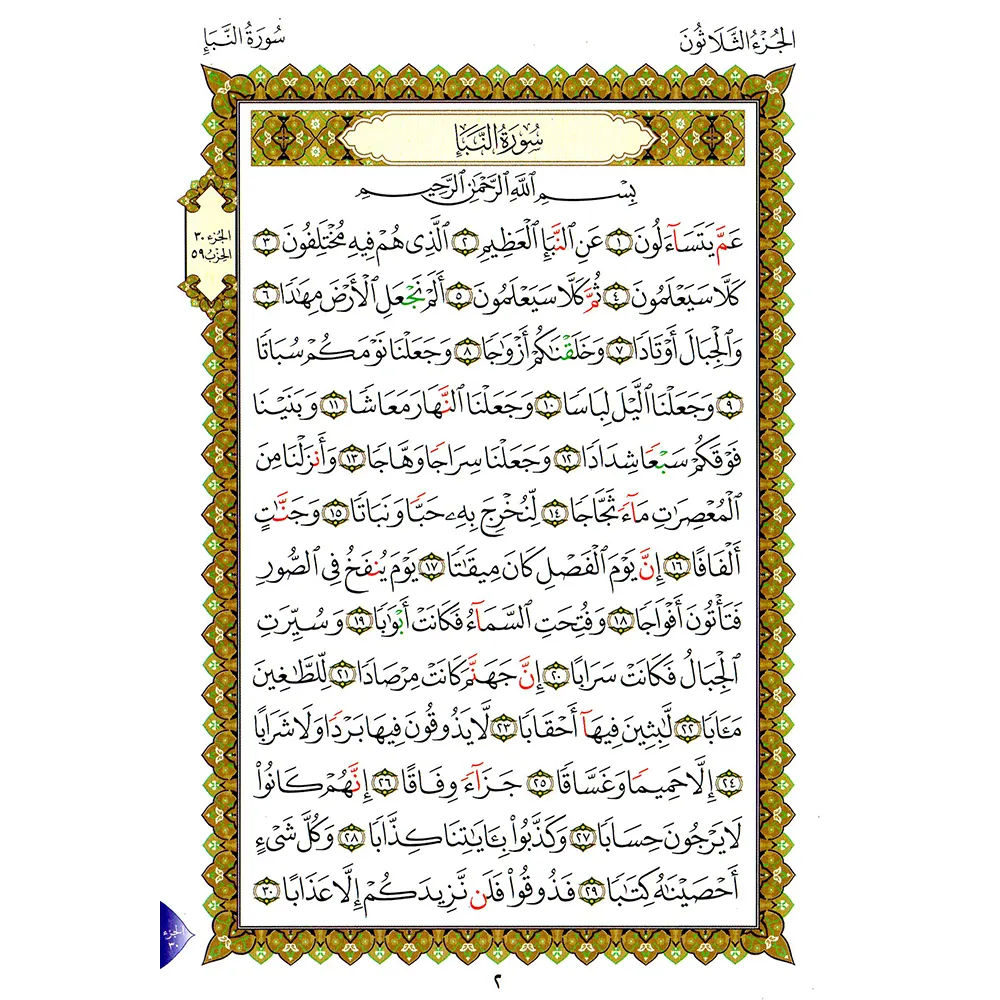 الجُزْءُ الثَّلَاثُونَ
سُورَةُ النَّبَإِ
سُورَةُ النَّبَإِ
بِسْمِ ٱللَّهِ ٱلرَّحْمَٰنِ ٱلرَّحِيمِ
الجزء ٣٠
الحزب ٥٩
عَمَّ يَتَسَآءَلُونَ ١ عَنِ ٱلنَّبَإِ ٱلْعَظِيمِ ٢ ٱلَّذِى هُمْ فِيهِ مُخْتَلِفُونَ ٣
كَلَّا سَيَعْلَمُونَ ٤ ثُمَّ كَلَّا سَيَعْلَمُونَ ٥ أَلَمْ نَجْعَلِ ٱلْأَرْضَ مِهَٰدًا ٦
وَٱلْجِبَالَ أَوْتَادًا ٧ وَخَلَقْنَٰكُمْ أَزْوَٰجًا ٨ وَجَعَلْنَا نَوْمَكُمْ سُبَاتًا
٩ وَجَعَلْنَا ٱلَّيْلَ لِبَاسًا ١٠ وَجَعَلْنَا ٱلنَّهَارَ مَعَاشًا ١١ وَبَنَيْنَا
فَوْقَكُمْ سَبْعًا شِدَادًا ١٢ وَجَعَلْنَا سِرَاجًا وَهَّاجًا ١٣ وَأَنزَلْنَا مِنَ
ٱلْمُعْصِرَٰتِ مَآءً ثَجَّاجًا ١٤ لِّنُخْرِجَ بِهِۦ حَبًّا وَنَبَاتًا ١٥ وَجَنَّٰتٍ
أَلْفَافًا ١٦ إِنَّ يَوْمَ ٱلْفَصْلِ كَانَ مِيقَٰتًا ١٧ يَوْمَ يُنفَخُ فِى ٱلصُّورِ
فَتَأْتُونَ أَفْوَاجًا ١٨ وَفُتِحَتِ ٱلسَّمَآءُ فَكَانَتْ أَبْوَٰبًا ١٩ وَسُيِّرَتِ
ٱلْجِبَالُ فَكَانَتْ سَرَابًا ٢٠ إِنَّ جَهَنَّمَ كَانَتْ مِرْصَادًا ٢١ لِّلطَّٰغِينَ
مَـَٔابًا ٢٢ لَّٰبِثِينَ فِيهَآ أَحْقَابًا ٢٣ لَّا يَذُوقُونَ فِيهَا بَرْدًا وَلَا شَرَابًا
٢٤ إِلَّا حَمِيمًا وَغَسَّاقًا ٢٥ جَزَآءً وِفَاقًا ٢٦ إِنَّهُمْ كَانُوا۟
لَا يَرْجُونَ حِسَابًا ٢٧ وَكَذَّبُوا۟ بِـَٔايَٰتِنَا كِذَّابًا ٢٨ وَكُلَّ شَىْءٍ
أَحْصَيْنَٰهُ كِتَٰبًا ٢٩ فَذُوقُوا۟ فَلَن نَّزِيدَكُمْ إِلَّا عَذَابًا ٣٠
الجزء
٣٠
٢